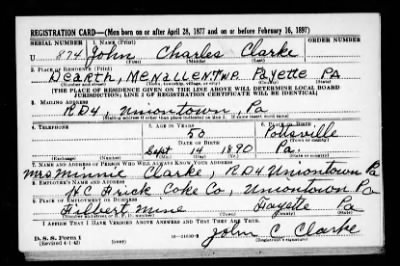 REGISTRATION CARD—(Men born on or after April 28, 1877 and on or before February 16, 1897)
SERIAL NUMBER 1. NAME (Print) ORDER NUMBER
U 874 John Charles Clarke
(First) (Middle) (Last)
2. PLACE OF RESIDENCE (Print)
Dearth, Menallen Twp. Fayette Pa
(Number and street) (Town, township, village, or city) (County) (State)
[THE PLACE OF RESIDENCE GIVEN ON THE LINE ABOVE WILL DETERMINE LOCAL BOARD
JURISDICTION; LINE 2 OF REGISTRATION CERTIFICATE WILL BE IDENTICAL]
3. MAILING ADDRESS
RD4, Uniontown, Pa
[Mailing address if other than place indicated on line 2. If same insert word same]
4. TELEPHONE 5. AGE IN YEARS 6. PLACE OF BIRTH
50 Pottsville
DATE OF BIRTH (Town or county)
Sept 14 1890 Pa.
(Exchange) (Number) (Mo.) (Day) (Yr.) (State or country)
7. NAME AND ADDRESS OF PERSON WHO WILL ALWAYS KNOW YOUR ADDRESS
Mrs Minnie Clarke, RD4 Uniontown Pa
8. EMPLOYER'S NAME AND ADDRESS
H.C. Frick Coke Co, Uniontown Pa
9. PLACE OF EMPLOYMENT OR BUSINESS
Filbert Mine Fayette Pa
(Number and street or R. F. D. number) (Town) (County) (State)
I AFFIRM THAT I HAVE VERIFIED ABOVE ANSWERS AND THAT THEY ARE TRUE.
D. S. S. Form 1
(Revised 4-1-42) John C Clarke